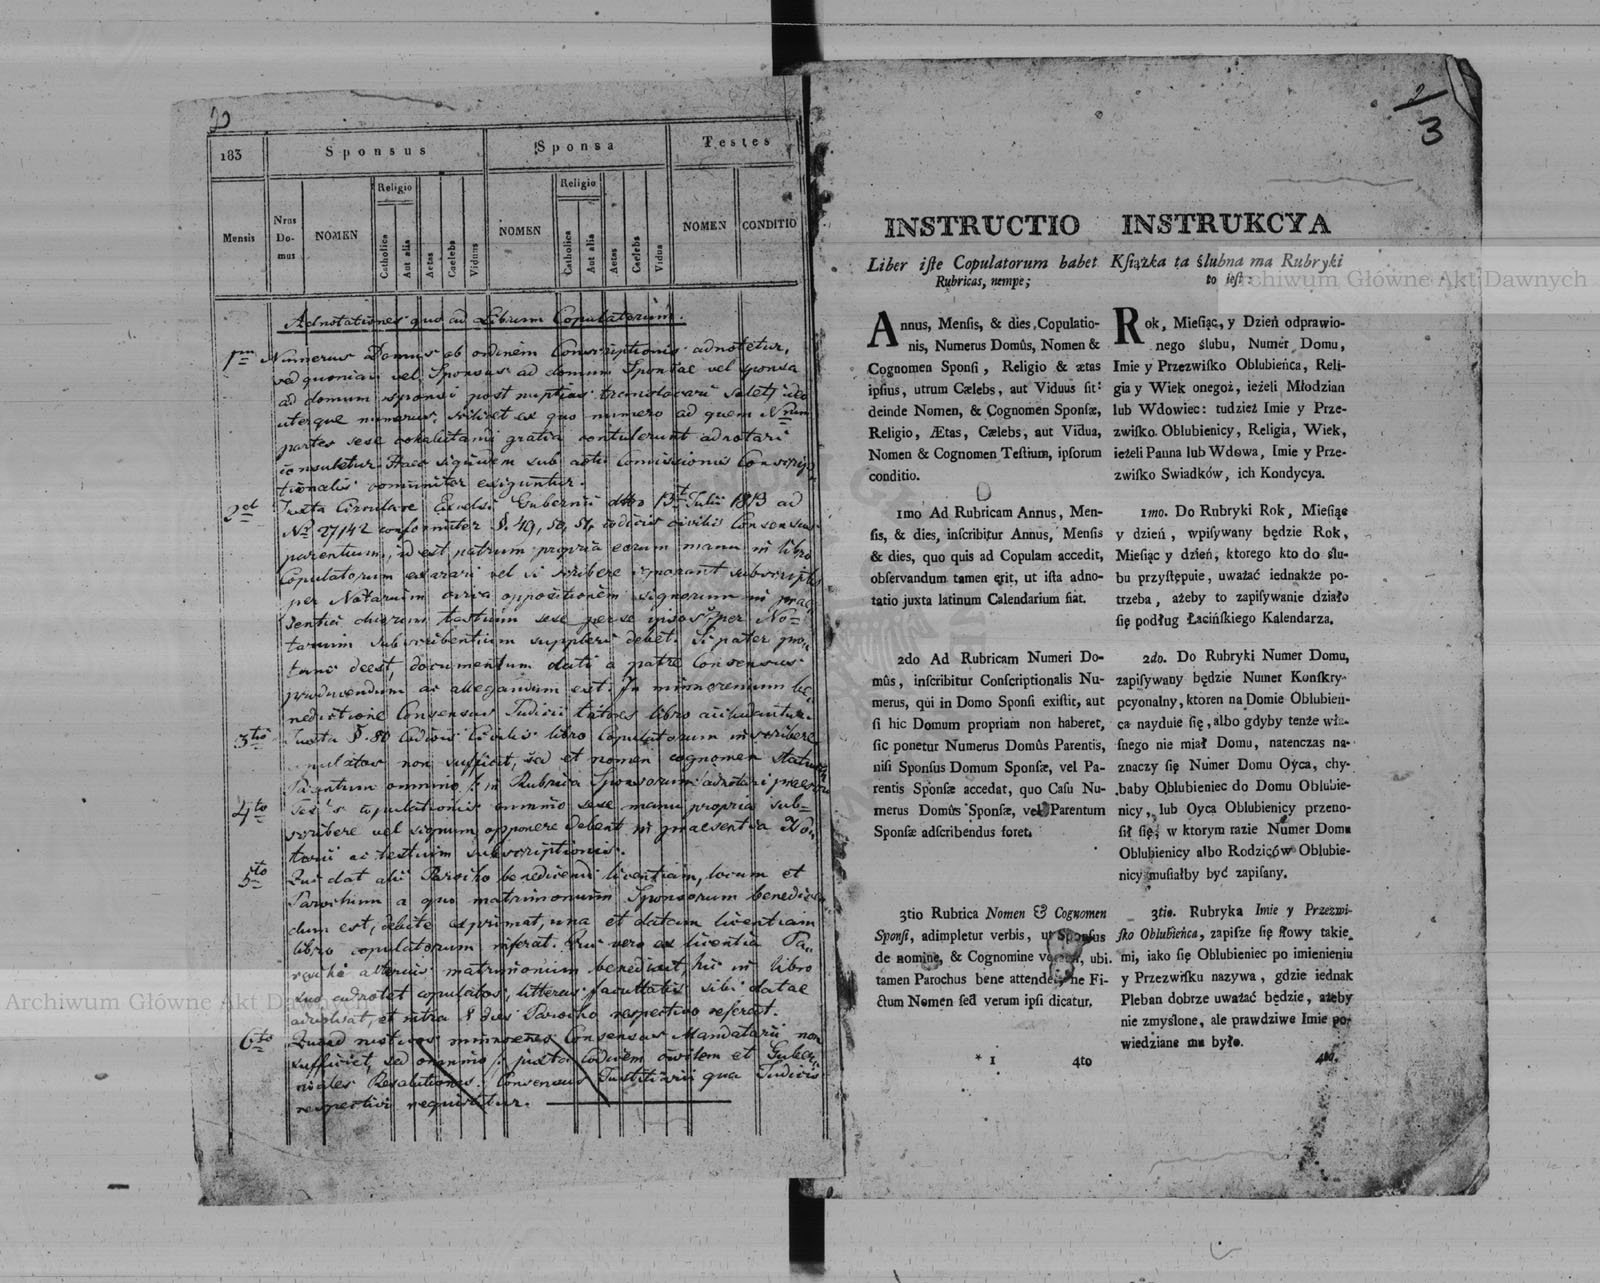 2
183
Sponsus
Sponsa
Testes
Mensis
Nrus
Do-
mus
NOMEN
Religio
Catholica
Aut alia
Aetas
Caelebs
Viduus
NOMEN
Religio
Catholica
Aut alia
Aetas
Caelebs
Vidua
NOMEN
CONDITIO
Adnotationes quo ad Librum Copulatorum.
1mo Numerus Domus ob ordinem Conscriptionis adnotetur,
sed quoniam vel Sponsus ad domum Sponsae vel sponsa
ad domum sponsi post nuptias translocari solet, ideo
uterque numerus, scilicet ex quo numero ad quem Nrum
partes sese cohabitandi gratia contulerunt adnotari
consuletur. Haec siquidem sub actu Comissionis Conscrip
tionalis communiter exiguntur.
2do Juxta Circulare Excelsi Gubernii dtto 13t Julii 1813 ad
No 27142 conformiter § 49, 50, 51, codicis civilis Consensus
parentum, id est patrum propria eorum manu in libro
Copulatorum exarari vel si scribere ignorant subscriptis
per Notarium circa oppositionem signorum in prae
sentia duorum testium sese per se ipsos per No=
tarium subscribentium suppleri debet. Si pater pro=
tunc deest, documentum dati a patre Consensus
producendum ac allegandum est. In minorenium be
nedictione Consensus Judicii tutores libro includantur.
3tio Juxta § 80 Codicis Civilis libro Copulatorum inscribere
copulatos non sufficit, sed et nomen cognomen statum
Parentum omnino in Rubrica Sponsorum adnotari
4to Testes copulationis omnino sese manu propria sub=
scribere vel signum opponere debent in praesentia No=
tarii ac testium subscriptionis.
5to Qui dat alii Parocho benedicendi licentiam, locum et
Parochum a quo matrimonium Sponsorum benedicen
dum est, debite exprimat, una et datam licentiam
libro copulatorum inferat. Qui vero ex licentia Pa=
rochi alterius matrimonium benedicit, hic in libro
suo adnotet copulatos, litteras facultatis sibi datae
advolvat, et intra 8 dies Parocho respectivo referat.
6to Quoad rusticos minorenes Consensus Mandatarii non
sufficit, sed omnino juxta Codicem civilem et Guber
niales Resolutiones Consensus Instituti qua Judicii
respectivi requiritur.
2/3
INSTRUCTIO
Liber iſte Copulatorum habet
Rubricas, nempe;
Annus, Menſis, & dies, Copulatio-
nis, Numerus Domûs, Nomen &
Cognomen Sponſi, Religio & ætas
ipſius, utrum Cælebs, aut Viduus ſit:
deinde Nomen, & Cognomen Sponſæ,
Religio, Ætas, Cælebs, aut Vidua,
Nomen & Cognomen Teſtium, ipſorum
conditio.
1mo Ad Rubricam Annus, Men-
ſis, & dies, inſcribitur Annus, Menſis
& dies, quo quis ad Copulam accedit,
obſervandum tamen erit, ut iſta adno-
tatio juxta latinum Calendarium fiat.
2do Ad Rubricam Numeri Do-
mûs, inſcribitur Conſcriptionalis Nu-
merus, qui in Domo Sponſi exiſtit, aut
ſi hic Domum propriam non haberet,
ſic ponetur Numerus Domûs Parentis,
niſi Sponſus Domum Sponſæ, vel Pa-
rentis Sponſæ accedat, quo Caſu Nu-
merus Domûs Sponſæ, vel Parentum
Sponſæ adſcribendus foret.
3tio Rubrica Nomen & Cognomen
Sponſi, adimpletur verbis, ut Sponſus
de nomine, & Cognomine vocatur, ubi
tamen Parochus bene attendet, ne Fi-
ctum Nomen ſed verum ipſi dicatur.
* 1 4to
INSTRUKCYA
Kſiążka ta ślubna ma Rubryki
to ieſt:
Rok, Mieſiąc, y Dzień odprawio-
nego ślubu, Numer Domu,
Imie y Przezwiſko Oblubieńca, Reli-
gia y Wiek onegoż, ieżeli Młodzian
lub Wdowiec: tudzież Imie y Prze-
zwiſko Oblubienicy, Religia, Wiek,
ieżeli Panna lub Wdowa, Imie y Prze-
zwiſko Swiadków, ich Kondycya.
1mo. Do Rubryki Rok, Mieſiąc
y dzień, wpiſywany będzie Rok,
Mieſiąc y dzień, ktorego kto do ślu-
bu przyſtępuie, uważać iednakże po-
trzeba, ażeby to zapiſywanie działo
ſię podług Łacińſkiego Kalendarza.
2do. Do Rubryki Numer Domu,
zapiſywany będzie Numer Konſkry-
pcyonalny, ktoren na Domie Oblubień-
ca nayduie ſię, albo gdyby tenże wła-
ſnego nie miał Domu, natenczas na-
znaczy ſię Numer Domu Oyca, chy-
baby Oblubieniec do Domu Oblubie-
nicy, lub Oyca Oblubienicy przeno-
ſił ſię, w ktorym razie Numer Domu
Oblubienicy albo Rodziców Oblubie-
nicy muſiałby być zapiſany.
3tio. Rubryka Imie y Przezwi-
ſko Oblubieńca, zapiſze ſię ſłowy takie-
mi, iako ſię Oblubieniec po imienieniu
y Przezwiſku nazywa, gdzie iednak
Pleban dobrze uważać będzie, ażeby
nie zmyślone, ale prawdziwe Imie po-
wiedziane mu było.
4to.
Archiwum Główne Akt Dawnych
Archiwum Główne Akt Dawnych